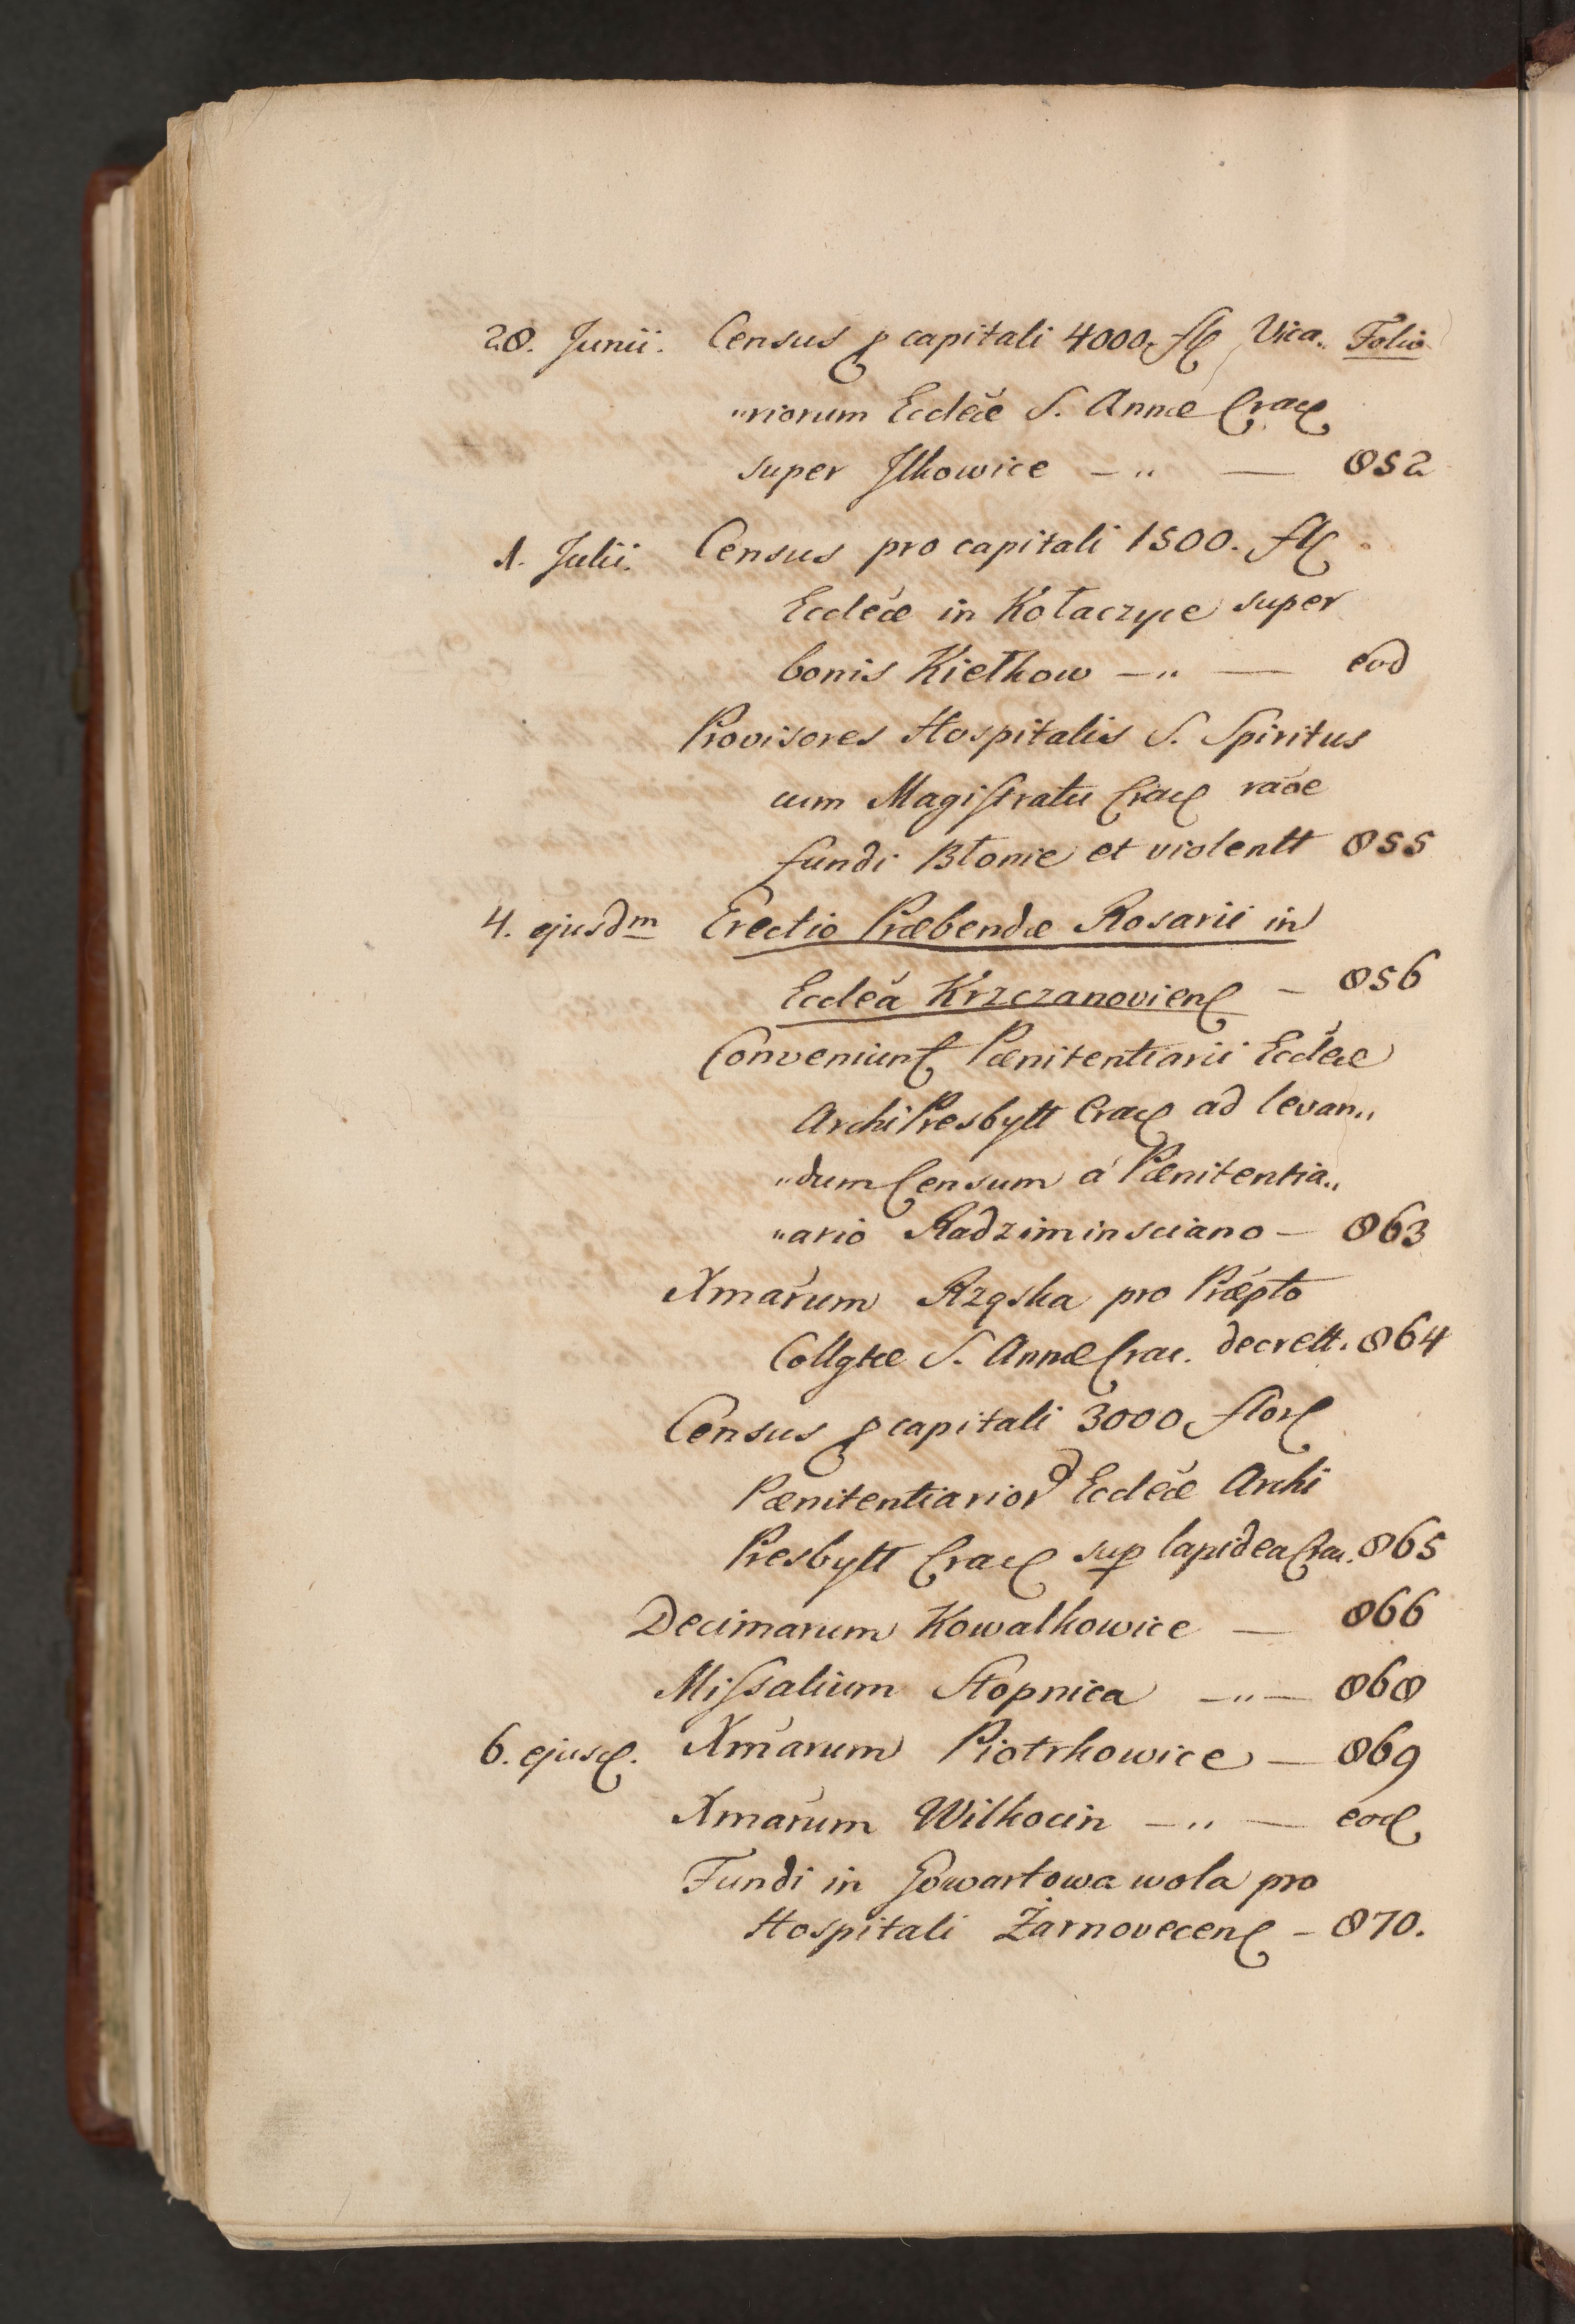 28. Junii. Census p capitali 4000 fl Vica„ Folio
„riorum Eccleæ S. Annæ Crac
super Ilkowice — „ — 852
1. Julii. Census pro capitali 1500. fl
Eccleæ in Kołaczyce super
bonis Kiełkow — „ — eod
Provisores Hospitalis S. Spiritus
cum Magistratu Crac raoe
fundi Błonie et violentt 855
4. ejusdm Erectio Præbendæ Rosarii in
Ecclea Krzczanoviens — 856
Conveniunt Pænitentiarii Eccleæ
ArchiPresbytt Crac ad levan„
„dum Censum á Pænitentia„
„ario Radziminsciano — 863
Xmarum Rząska pro Præpto
Collgtæ S. Annæ Crac. decrett. 864
Census p capitali 3000 flor
Pænitentiarior Eccleæ Archi
Presbytt Crac sup lapidea Crac. 865
Decimarum Kowalkowice — 866
Missalium Stopnica — „ — 868
6. ejusd. Xmarum Piotrkowice — 869
Xmarum Wilkocin — „ — eod
Fundi in Gowartowa wola pro
Hospitali Żarnovecens — 870.